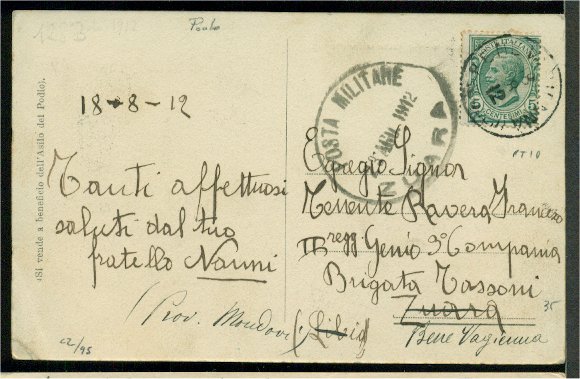 Paolo
18-8-12
Tanti affettuosi
saluti dal tuo
fratello Nanni
(Si vende a beneficio dell'Asilo del Podio).
POSTE ITALIANE
CENTESIMI 5
POSTA MILITARE
1912
ZUARA
PT10
Egregio Signor
Tenente Ravera Francesco
III regg Genio 3º Compagnia
Brigata Tassoni
Zuara
35
(Libia)
(Prov. Mondovi)
Bene Vagienna
c2/95